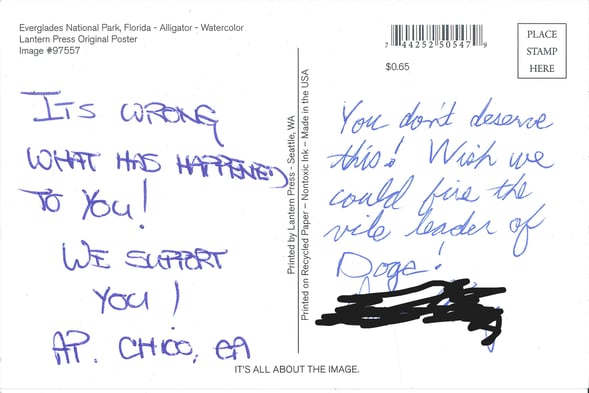 Everglades National Park, Florida - Alligator - Watercolor
Lantern Press Original Poster
Image #97557
7 44252 50547 9
$0.65
PLACE
STAMP
HERE
ITS WRONG
WHAT HAS HAPPENED
TO YOU!
WE SUPPORT
YOU!
AP. CHICO, CA
Printed by Lantern Press - Seattle, WA
Printed on Recycled Paper – Nontoxic Ink – Made in the USA
You don't deserve
this! Wish we
could fire the
vile leader of
Doge!
IT'S ALL ABOUT THE IMAGE.